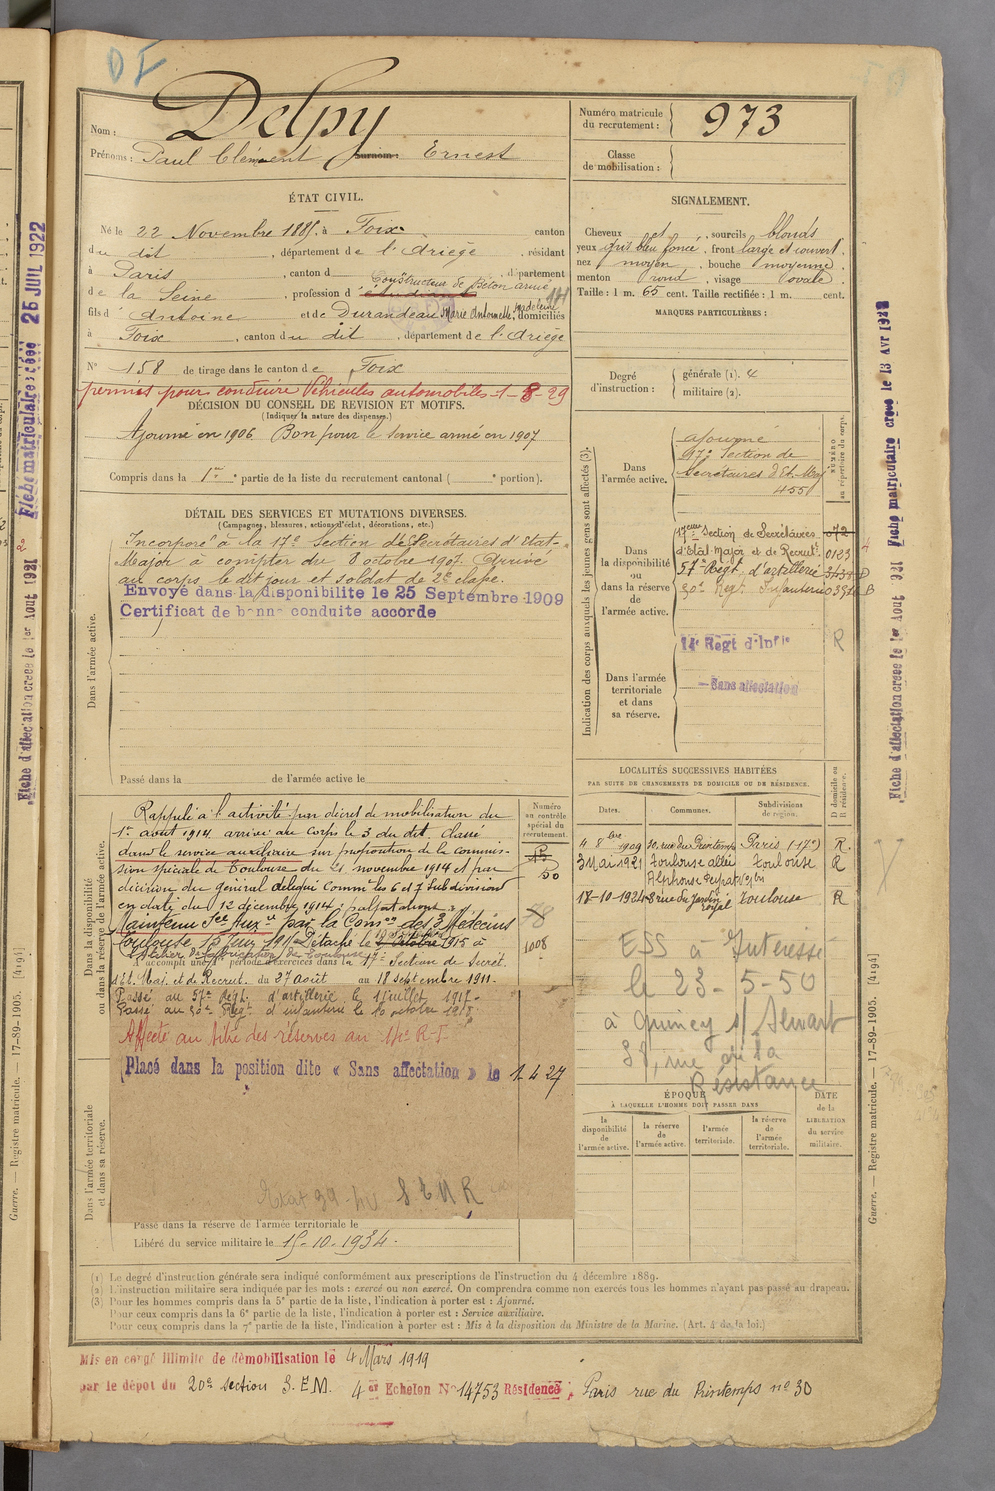 DI
Nom : Delpy
Prénoms : Paul Clément Surnom : Ernest
Numéro matricule du recrutement : 973
Classe de mobilisation :
ÉTAT CIVIL.
Né le 22 Novembre 1885, à Foix canton
du dit, département de l'Ariège, résidant
à Paris, canton d, département
de la Seine, profession d'étudiant Constructeur de Béton armé
fils d'Antoine et de Durandeau Marie Antoinette Madeleine, domiciliés
à Foix, canton du dit, département de l'Ariège
N° 158 de tirage dans le canton de Foix
permis pour conduire Véhicules automobiles 1-8-29
DÉCISION DU CONSEIL DE REVISION ET MOTIFS.
(Indiquer la nature des dispenses.)
Ajourné en 1906 Bon pour le service armé en 1907
Compris dans la 1re partie de la liste du recrutement cantonal ( e portion).
DÉTAIL DES SERVICES ET MUTATIONS DIVERSES.
(Campagnes, blessures, actions d'éclat, décorations, etc.)
Dans l'armée active.
Incorporé à la 17e Section de Secrétaires d'Etat-
Major à compter du 8 octobre 1907. Arrivé
au corps le dit jour et soldat de 2e classe.
Envoyé dans la disponibilité le 25 Septembre 1909
Certificat de bonne conduite accordé
Passé dans la de l'armée active le
Dans la disponibilité ou dans la réserve de l'armée active.
Rappelé à l'activité par décret de mobilisation du
1er août 1914 arrivé au corps le 3 du dit. Classé
dans le service auxiliaire sur proposition de la commis-
sion spéciale de Toulouse du 21 novembre 1914 et par
décision du général délégué Commt les 6 et 7 Subdivisions
en date du 12 décembre 1914 : palpitations.
Maintenu Sce Auxre par la Comon des 3 Médecins
Toulouse 15 Juin 1915 Détaché le 1915 à
l'Atelier de fabrication de Toulouse
A accompli une 1re période d'exercices dans la 17e Section de Secrét.
d'Et. Maj. et de Recrut. du 27 août au 18 septembre 1911.
Passé au 57e Régt d'artillerie le 1er juillet 1917.
Passé au 50e Régt d'infanterie le 10 octobre 1918.
Affecté au titre des réserves au 14e R.I.
Placé dans la position dite « Sans affectation » le 1-4-27
Numéro au contrôle spécial du recrutement.
50
1008
Dans l'armée territoriale et dans sa réserve.
Passé dans la réserve de l'armée territoriale le
Libéré du service militaire le 15-10-1934.
SIGNALEMENT.
Cheveux et, sourcils blonds
yeux gris bleu foncé, front large et couvert,
nez moyen, bouche moyenne,
menton rond, visage ovale.
Taille : 1 m. 65 cent. Taille rectifiée : 1 m. cent.
MARQUES PARTICULIÈRES :
Degré d'instruction : générale (1). 4
militaire (2).
Indication des corps auxquels les jeunes gens sont affectés (3).
NUMÉRO au répertoire du corps.
Dans l'armée active.
ajourné
17e Section de
Secrétaires d'Et. Major
455
Dans la disponibilité ou dans la réserve de l'armée active.
17eme Section de Secrétaires 072
d'Etat-Major et de Recrutt 0123
57e Régt d'artillerie
50e Régt Infanterie
14e Regt d'Infie R
Dans l'armée territoriale et dans sa réserve.
Sans affectation
LOCALITÉS SUCCESSIVES HABITÉES
PAR SUITE DE CHANGEMENTS DE DOMICILE OU DE RÉSIDENCE.
Dates. Communes. Subdivisions de région. D domicile ou R résidence.
4 8bre 1909 30, rue du Printemps Paris (17e) R.
3 Mai 1921 Toulouse allée Alphonse Peyrat Toulouse R
18-10-1924 8 rue du Jardin royal Toulouse R
ESS à Intéressé
le 23-5-50
à Quincy s/ Sénart
38, rue de la
Résistance
ÉPOQUE
À LAQUELLE L'HOMME DOIT PASSER DANS
la disponibilité de l'armée active. la réserve de l'armée active. l'armée territoriale. la réserve de l'armée territoriale.
DATE de la LIBÉRATION du service militaire.
(1) Le degré d'instruction générale sera indiqué conformément aux prescriptions de l'instruction du 4 décembre 1889.
(2) L'instruction militaire sera indiquée par les mots : exercé ou non exercé. On comprendra comme non exercés tous les hommes n'ayant pas passé au drapeau.
(3) Pour les hommes compris dans la 5e partie de la liste, l'indication à porter est : Ajourné.
Pour ceux compris dans la 6e partie de la liste, l'indication à porter est : Service auxiliaire.
Pour ceux compris dans la 7e partie de la liste, l'indication à porter est : Mis à la disposition du Ministre de la Marine. (Art. 4 de la loi.)
Mis en congé illimité de démobilisation le 4 Mars 1919
par le dépôt du 20e section S.E.M. 4er Echelon N° 14753 Résidence : Paris rue du Printemps n° 30
Guerre. — Registre matricule. — 17-89-1905. [4194]
Guerre. — Registre matricule. — 17-89-1905. [4194]
Fiche d'affectation créée le 1er Aout 1921
Fiche matriculaire créée 25 JUIL 1922
Fiche d'affectation créée le 1er Aout 1921
Fiche matriculaire créée le 13 Avr